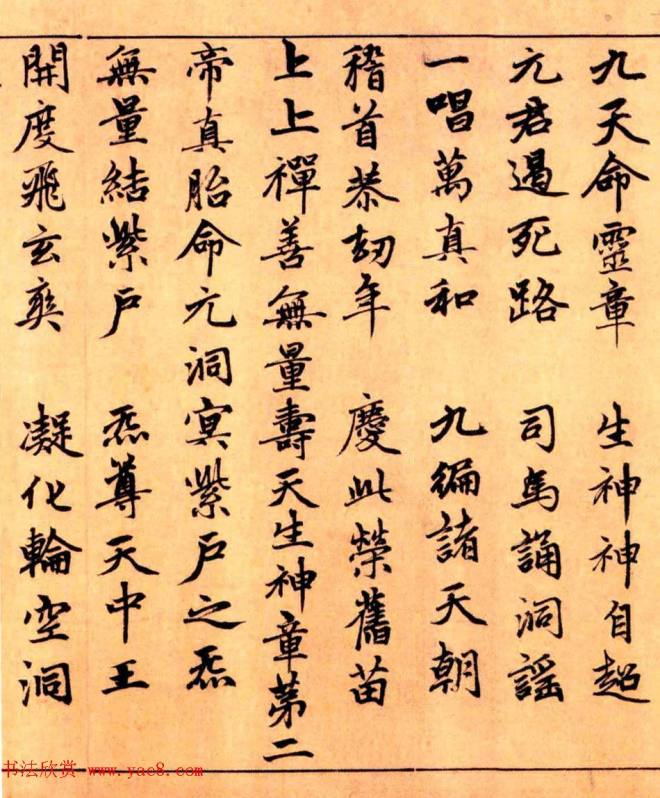 九天命靈章　生神神自超
元君遏死路　司馬誦洞謠
一唱萬真和　九編諸天朝
稽首恭劫年　慶此榮舊苗
上上禪善無量壽天生神章第二
帝真胎命元洞冥紫戶之炁
無量結紫戶　炁尊天中王
開度飛玄爽　凝化輪空洞
书法欣赏 www.yac8.com